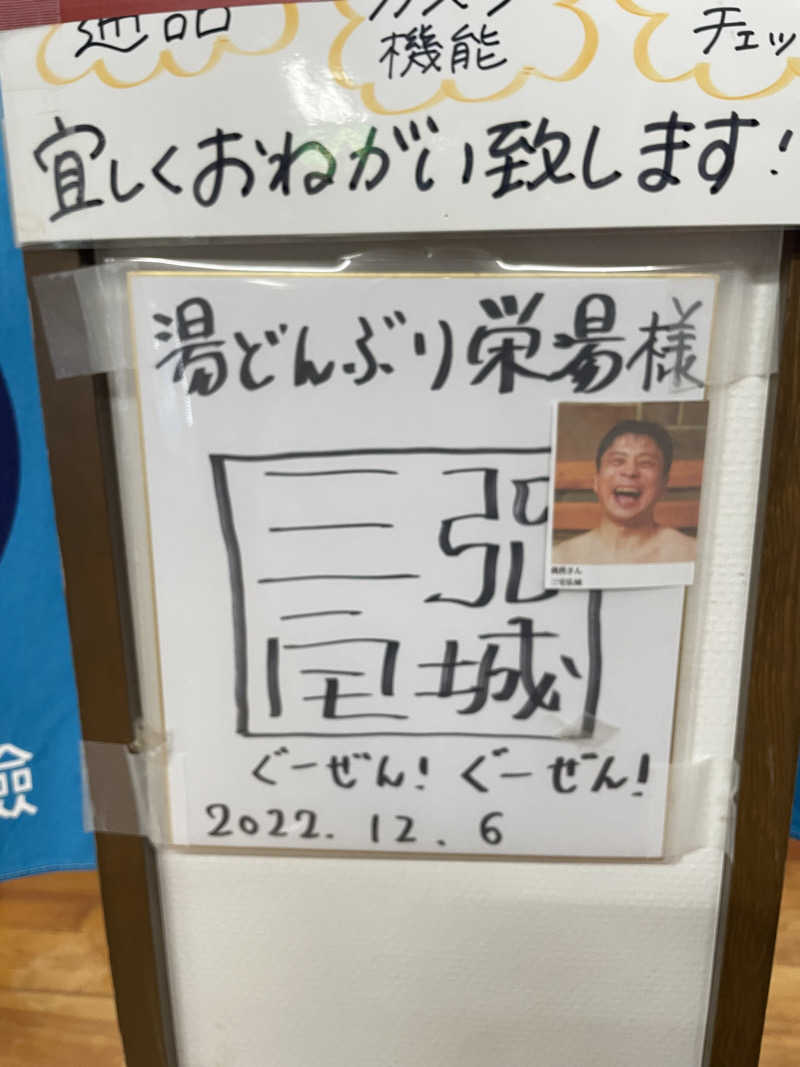 機能
チェッ
宜しくおねがい致します!
湯どんぶり栄湯様
三宅
弘城
ぐーぜん! ぐーぜん!
2022. 12. 6